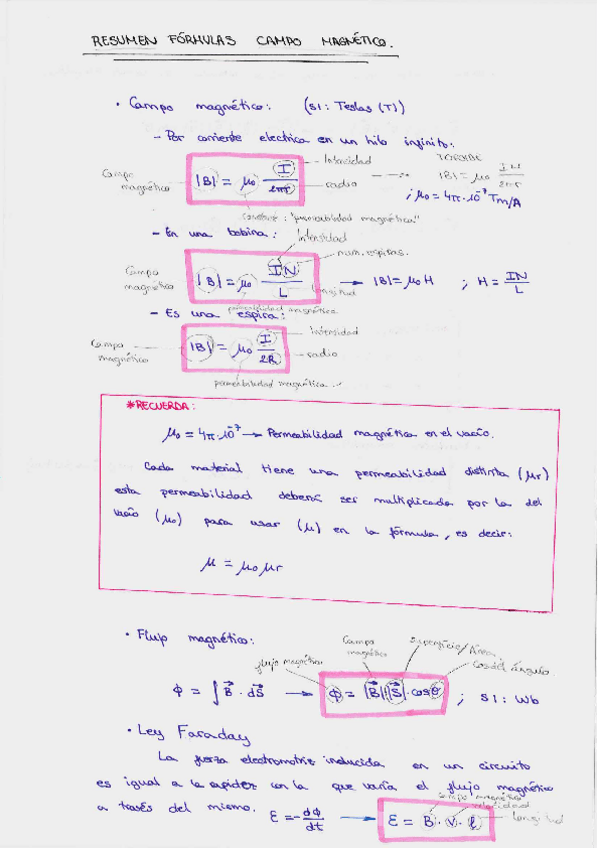 RESUMEN FÓRMULAS CAMPO MAGNÉTICO.
• Campo magnético: (SI: Teslas (T))
- Por corriente electrica en un hilo infinito:
Campo magnético
|B| = μ₀ I/2πr
Intensidad
radio
TOROIDE
|B| = μ₀ IN/2πr
; μ₀ = 4π·10⁻⁷ Tm/A
constante: "permeabilidad magnética"
- En una bobina:
Intensidad
num. espiras.
Campo magnético
|B| = μ₀ IN/L → |B| = μ₀ H ; H = IN/L
longitud
permeabilidad magnética
- Es una espira:
Intensidad
Campo magnético
|B| = μ₀ I/2R
radio
permeabilidad magnética
*RECUERDA:
μ₀ = 4π·10⁻⁷ → Permeabilidad magnética en el vacío.
Cada material tiene una permeabilidad distinta (μr)
esta permeabilidad deberá ser multiplicada por la del
vacío (μ₀) para usar (μ) en la fórmula, es decir:
μ = μ₀ μr
• Flujo magnético:
flujo magnético
Campo magnético
Superficie/Área
Cos del ángulo
ϕ = ∫ B⃗ · dS⃗ → ϕ = |B⃗|·|S⃗|·cosθ ; SI: Wb
• Ley Faraday
La fuerza electromotriz inducida en un circuito
es igual a la rapidez con la que varía el flujo magnético
a través del mismo. Ɛ = - dϕ/dt → Ɛ = B · v · l
campo magnético
velocidad
longitud